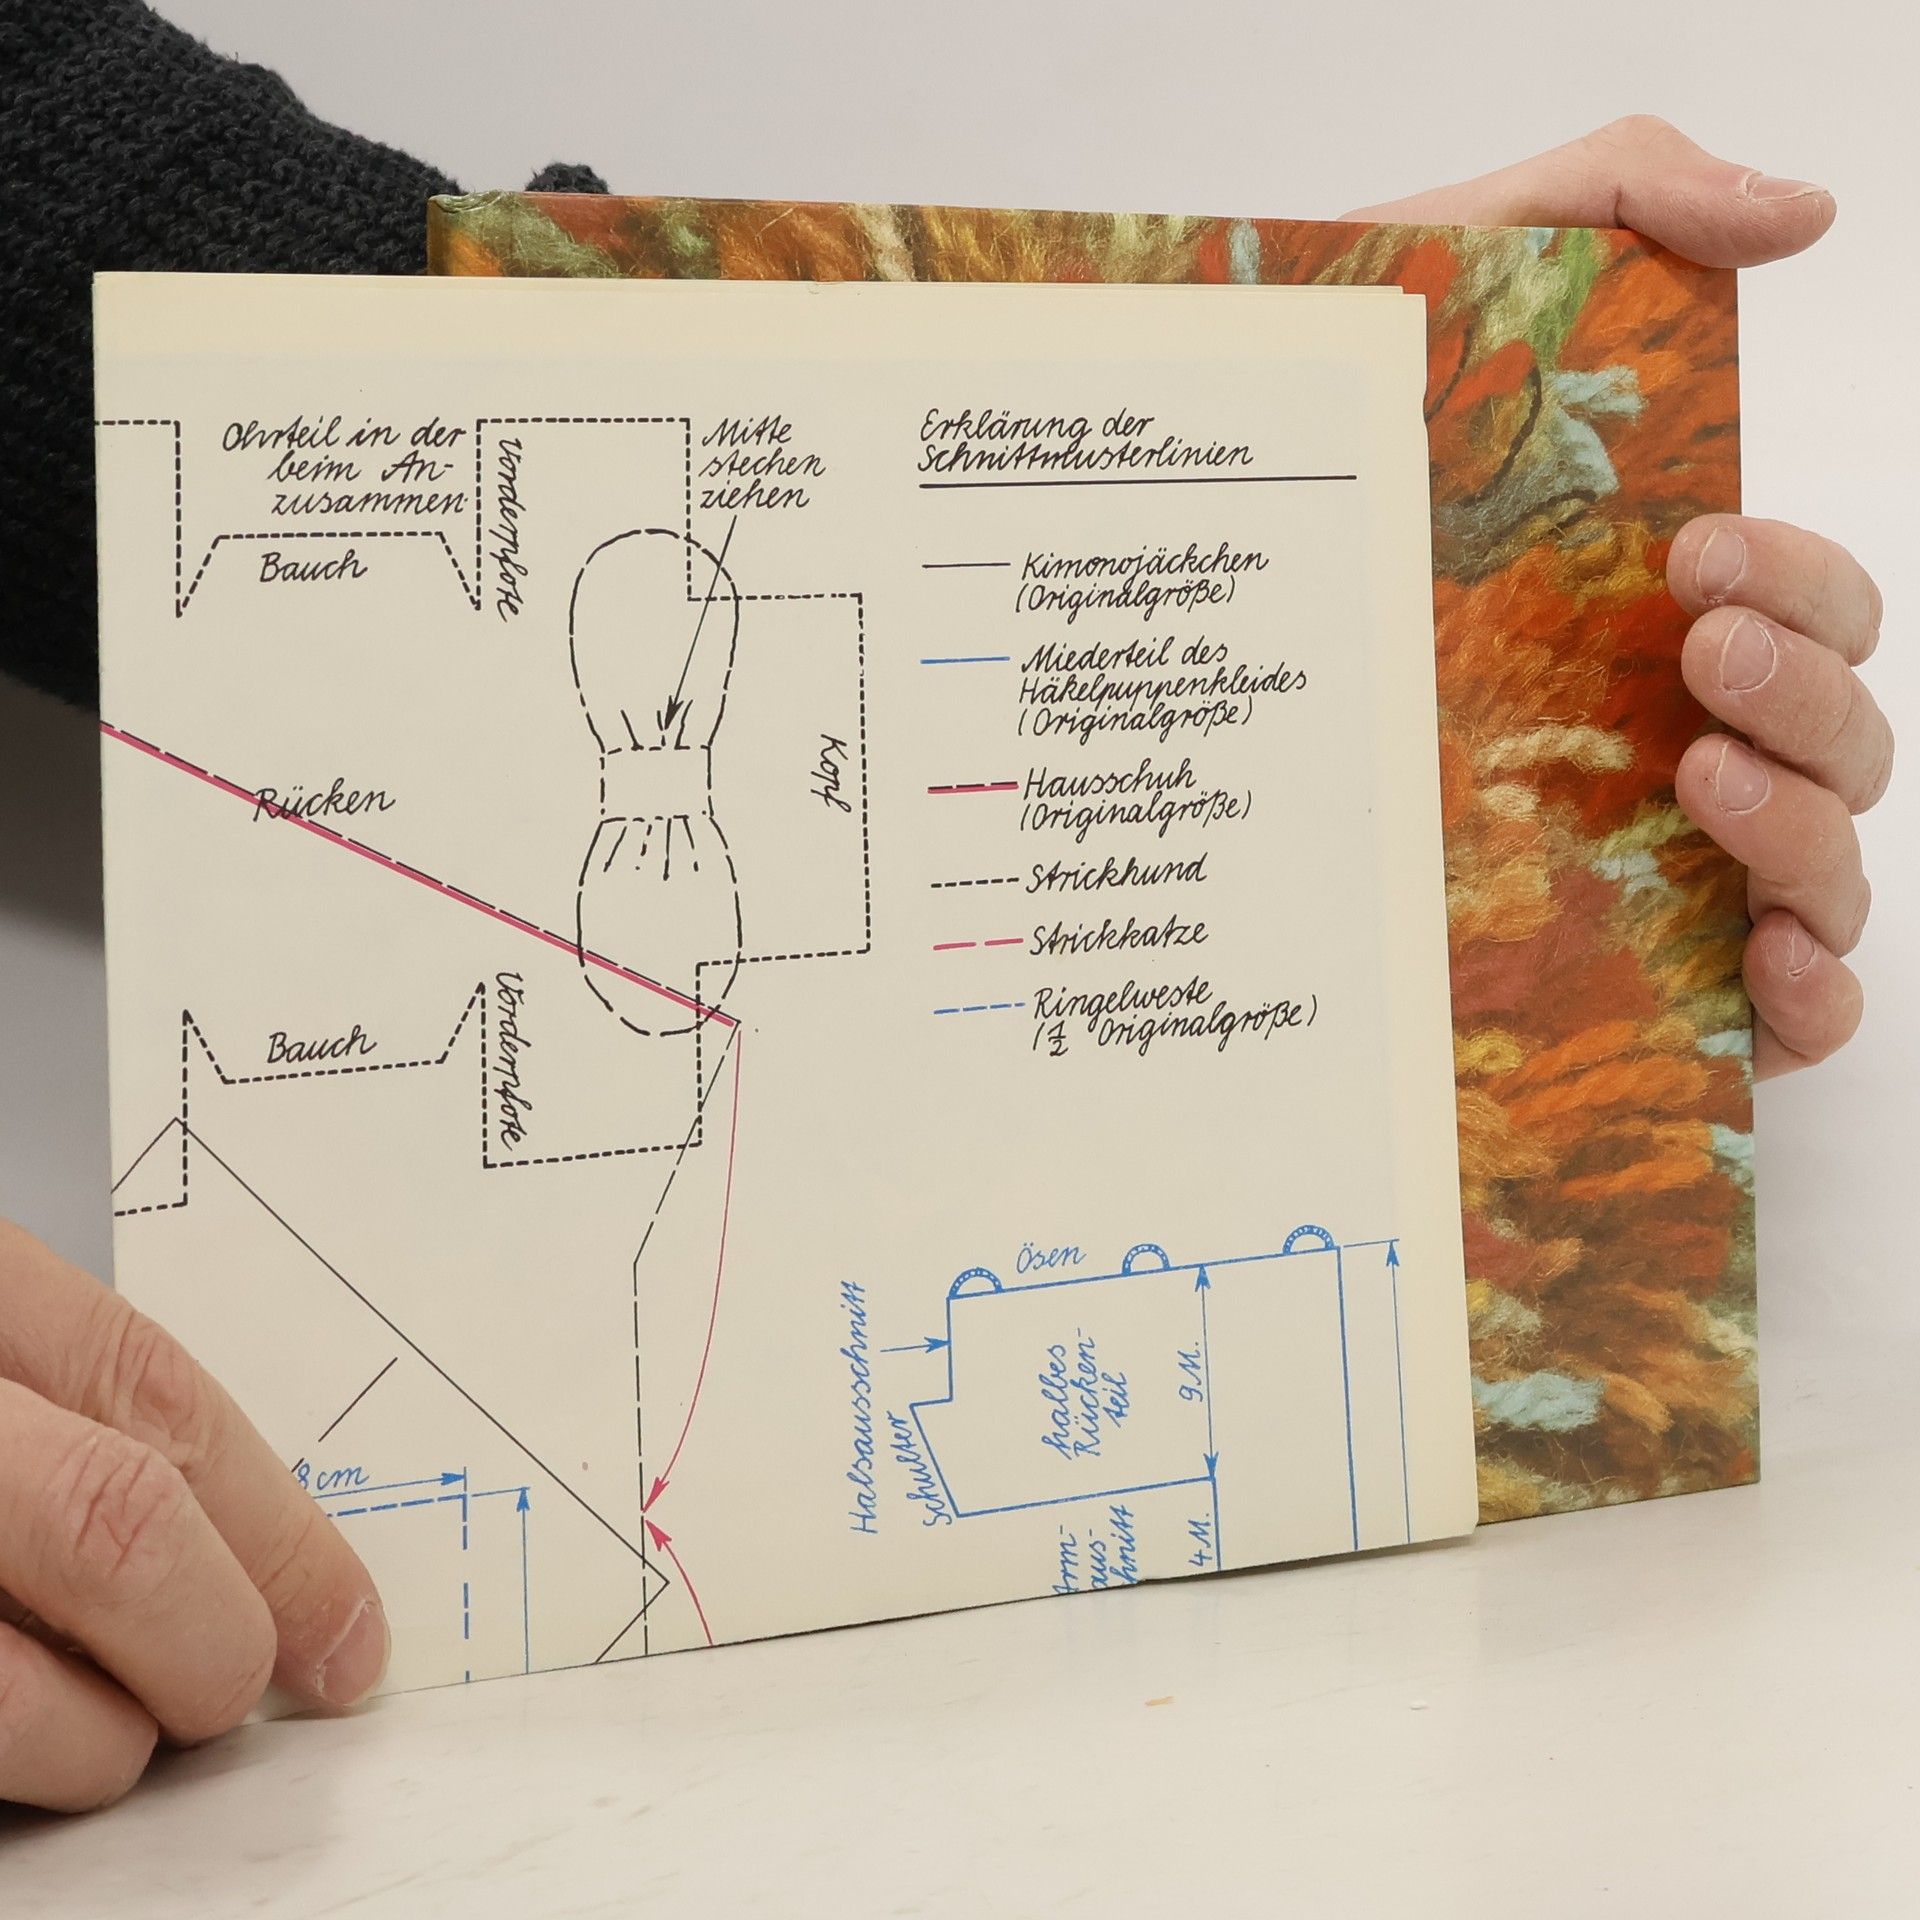 Ohrteil in der
beim An-
zusammen-
Bauch
Vorderpfote
Mitte
stechen
ziehen
Kopf
Rücken
Bauch
Vorderpfote
Erklärung der
Schnittmusterlinien
Kimonojäckchen
(Originalgröße)
Miederteil des
Häkelpuppenkleides
(Originalgröße)
Hausschuh
(Originalgröße)
Strickhund
Strickkatze
Ringelweste
(1/2 Originalgröße)
8 cm
Ösen
Halsausschnitt
Schulter
halbes
Rücken-
teil
9 M.
4 M.
Arm-
aus-
chnitt